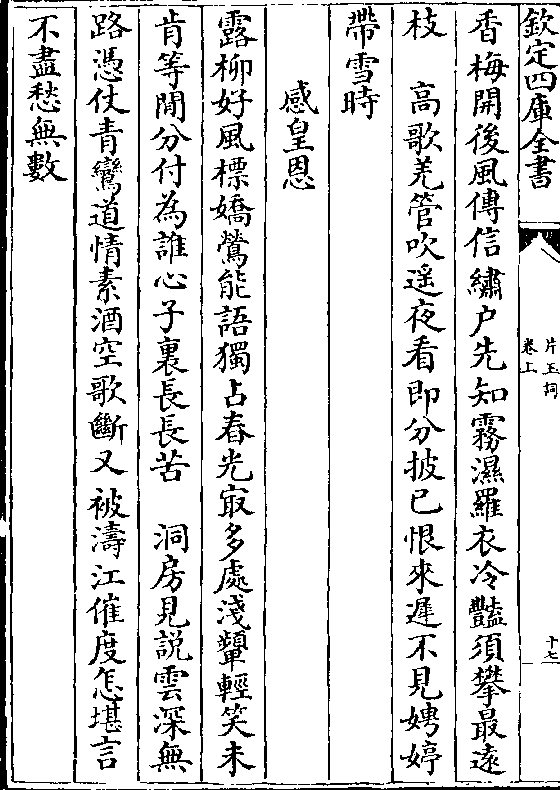 欽定四庫全書
片玉詞
卷上
十七
香梅開後風傳信繡户先知霧濕羅衣冷豔須攀最遠
枝　高歌羌管吹遥夜看即分披已恨來遲不見娉婷
帶雪時
感皇恩
露柳好風標嬌鶯能語獨占春光㝡多處淺顰輕笑未
肯等閒分付為誰心子裏長長苦　洞房見説雲深無
路憑仗青鸞道情素酒空歌斷又被濤江催度怎堪言
不盡愁無數